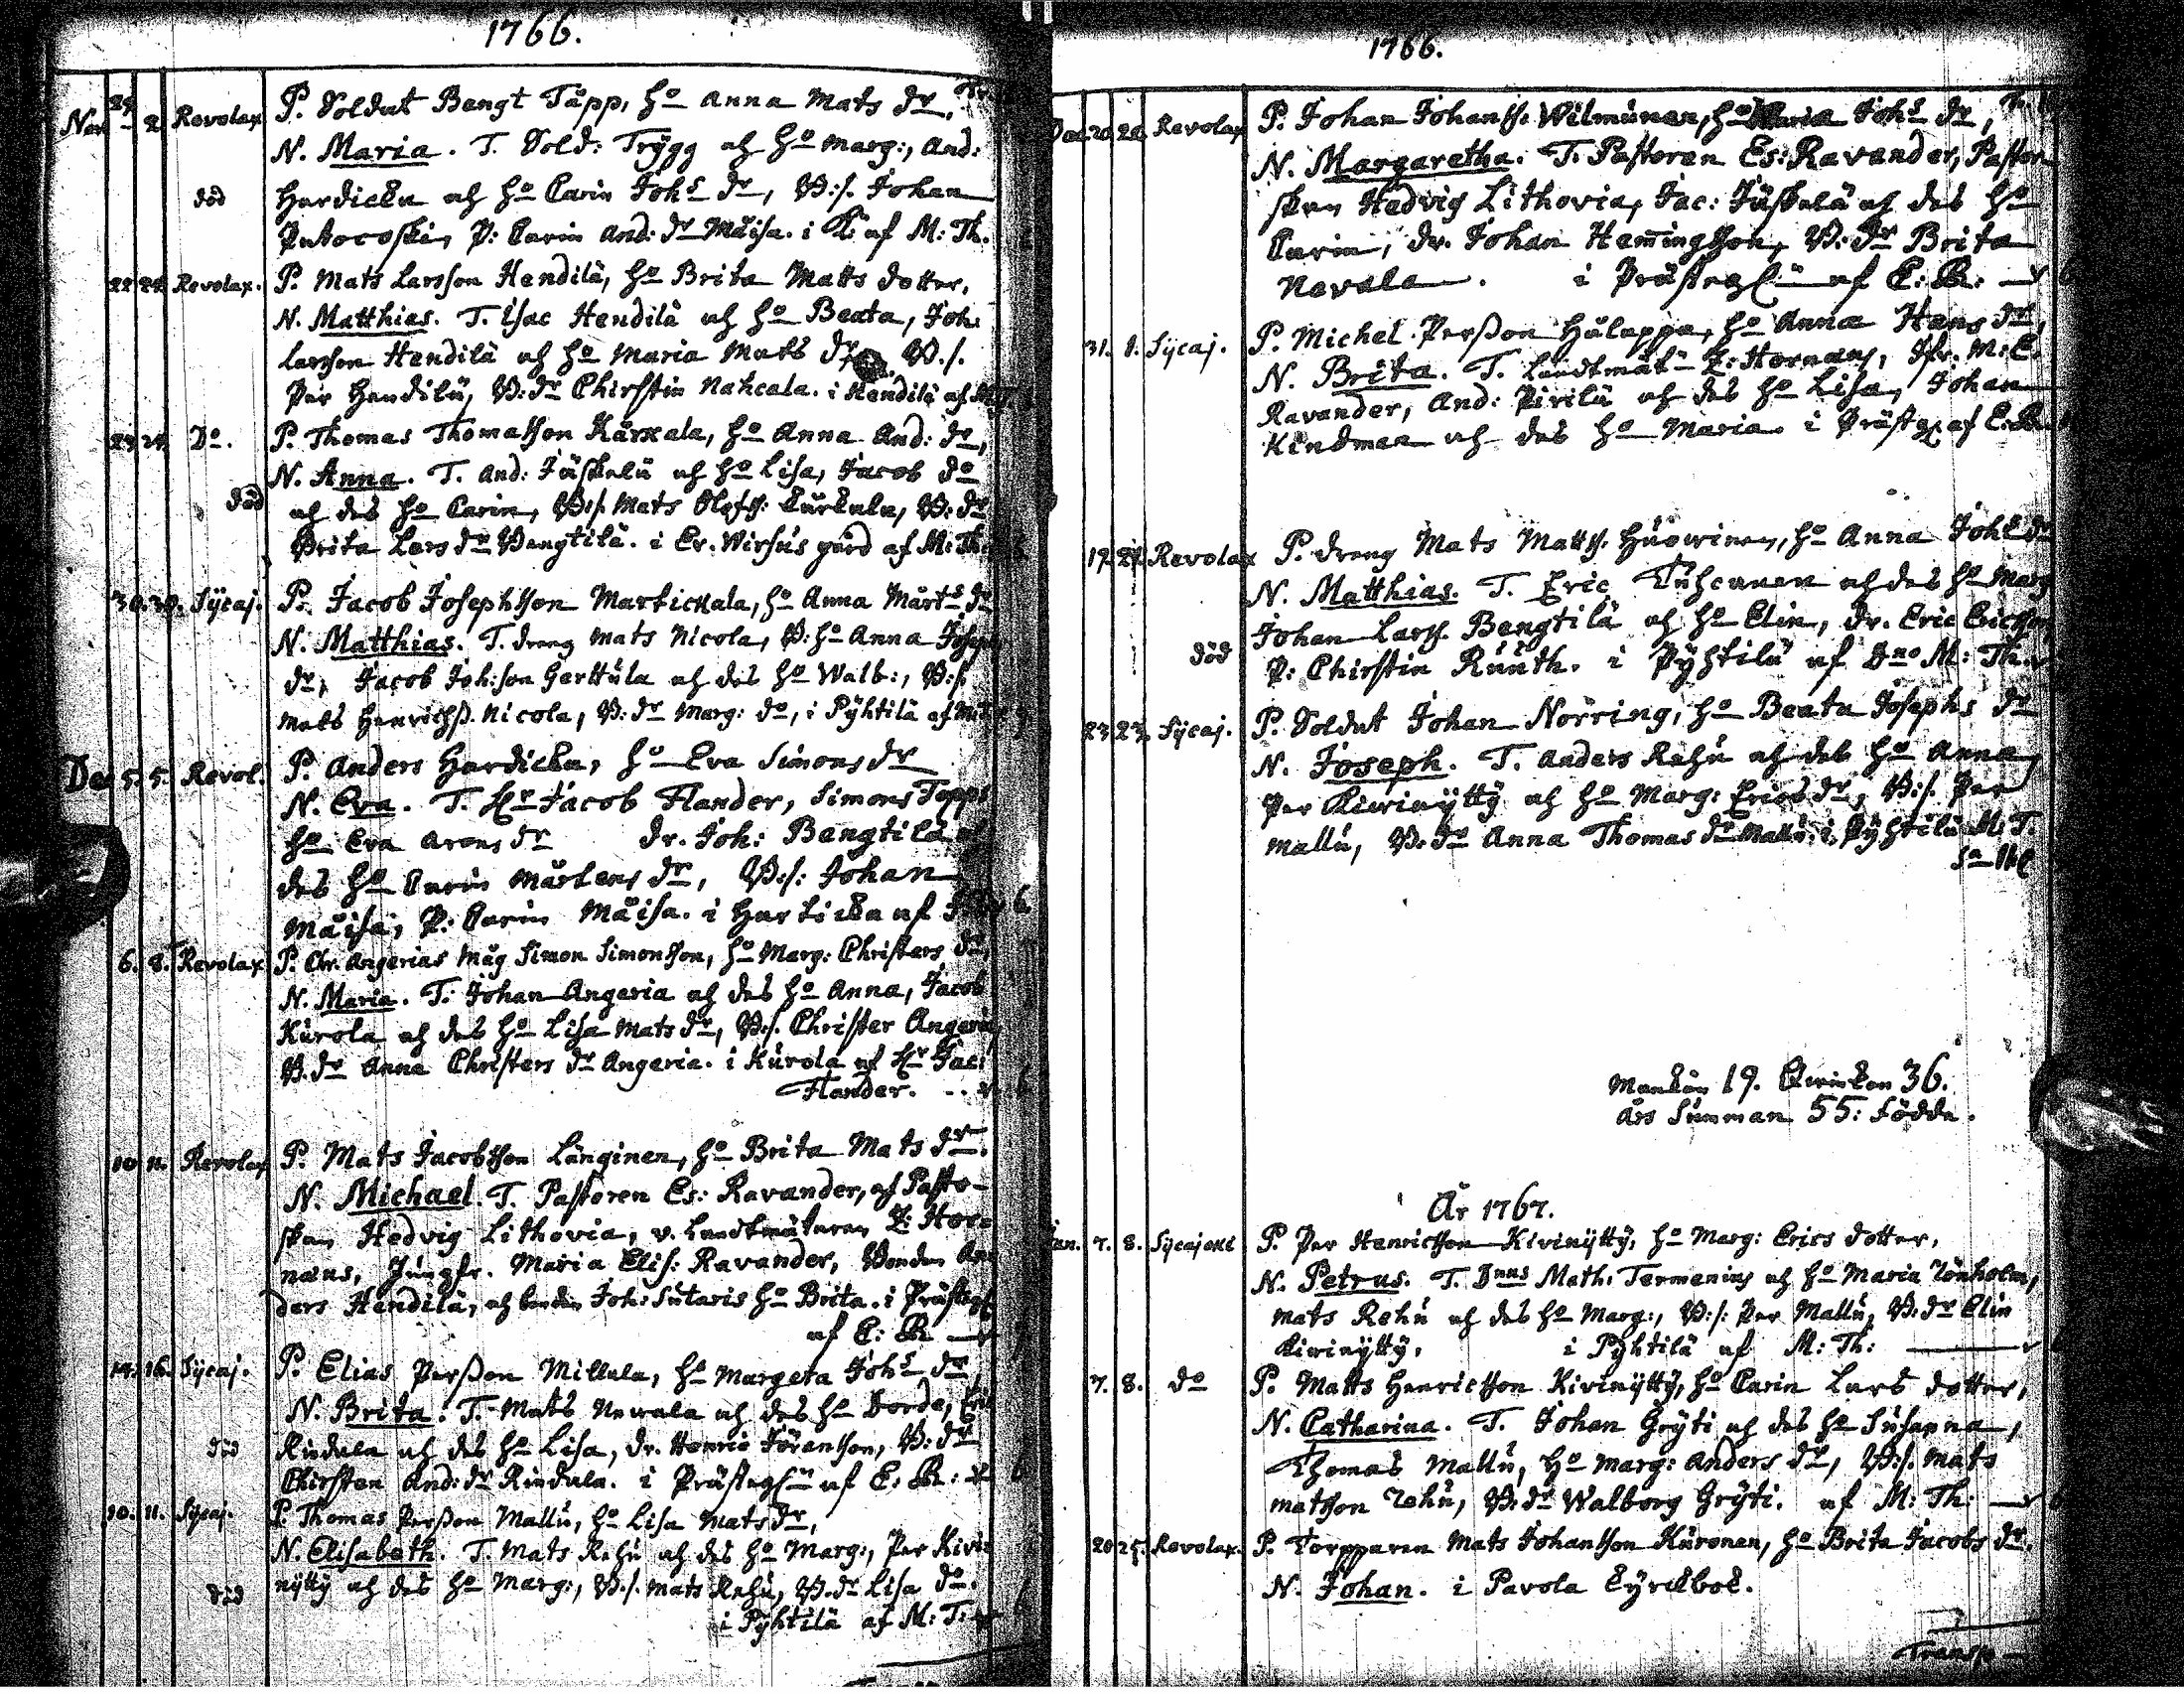 1766.
Nov 29 2 Revolax P. Soldat Bengt Täpp, ho Anna Mats dr,
N. Maria. T. Sold: Trÿgg och ho Marg:, And:
död Hardicka och ho Carin Johs dr, V:s. Johan
P: Carin And: dr Mäisa. i K: af M: Th.
22 24 Revolax. P. Mats Larsson Hendilä, ho Brita Matts dotter,
N. Matthias. T. Isac Hendilä och ho Beata, Joh:
Larsson Hendilä och ho Maria Mats dr, V:s.
Per Hendilä, V:dr Chirstin Nahcala. i Hendilä af
23 24. Do. P. Thomas Thomasson Kärkala, ho Anna And: dr,
N. Anna. T. And: Jäskelä och ho Lisa, Jacob do
död och des ho Carin, V:s. Mats Olofss: Curkula, V:dr
Brita Lars dr Bengtilä. i Er. Wirsus gård af M: Th:
30. 30. Sÿcaj. P. Jacob Josephsson Martickala, ho Anna Mårts dr
N. Matthias. T. dreng Mats Nicola, V: ho Anna Joseps
dr, Jacob Joh:son Gerttula och des ho Walb:, V:s.
Mats Henrichss. Nicola, V:dr Marg: do, i Pÿhtilä af
Dec 5. 5. Revol. P. Anders Hardicka, ho Eva Simons dr
N. Eva. T. Hr Jacob Flander, Simons Topps
ho Eva Arons dr dr. Joh: Bengtilä och
des ho Carin Mårtens dr, V:s: Johan
Mäisa, P: Carin Mäisa. i Hardicka af 6.
6. 8. Revolax P. Chr. Angerias måg Simon Simonsson, ho Marg: Christers dr,
N. Maria. T. Johan Angeria och des ho Anna, Jacob
Kurola och des ho Lisa Mats dr, V:s. Christer Angeria
V.dr Anna Christers dr Angeria. i Kurola af Hr Jac:
Flander.
10 11. Revolax P. Mats Jacobsson Länginen, ho Brita Mats dr.
N. Michael. T. Pastoren Es: Ravander, af Pasto-
skan Hedvig Lithovia, v. Landtmätaren Z: Hor-
naus, Jungfr. Maria Elis: Ravander, Bonden An-
ders Hendilä, och bonden Joh: Sutaris ho Brita. i Prästeg
af E: R.
14. 16. Sÿcaj. P. Elias Persson Millula, ho Margeta Johs dr,
N. Brita. T. Mats Newala och des ho Dorde, Eric
död Rindula och des ho Lisa, dr. Henric Jöransson, V:dr
Chirsten And: dr Rindula. i Prästegln af E: R:
10. 11. Sÿcaj. P. Thomas Persson Mallu, ho Lisa Mats dr,
N. Elisabeth. T. Mats Rehu och des ho Marg:, Per Kivi-
död nÿtty och des ho Marg:, V:s. Mats Rehu, V.dr Lisa do.
i Pÿhtilä af M: T:
1766.
Dec. 20. 20. Revolax P. Johan Johanss: Wilmunen, ho Maria Johs dr,
N. Margaretha. T. Pastoren Es: Ravander, Pastor-
skan Hedvig Lithovia, Jac: Jäskelä och des ho
Carin, dr. Johan Hemingsson, V:dr Brita
Navala. i Prästegln af E: R:
31. 1. Sÿcaj. P. Michel Persson Halappa, ho Anna Hans dr,
N. Brita. T. Landtmät- Z: Hornaus, Jfr. M: E.
Ravander, And: Pirilä och des ho Lisa, Johan
Kindman och des ho Maria. i Prästg. af E. R.
19. 21. Revolax P. dreng Mats Matts. Huowinen, ho Anna Johs dr
N. Matthias. T. Eric Tuhcunen och des ho Marg
Johan Larss. Bengtilä och ho Elin, dr. Eric Ericsson,
död P: Chirstin Ruuth. i Pÿhtilä af Dno M: Th.
23 23. Sÿcaj. P. Soldat Johan Norring, ho Beata Josephs dr
N. Joseph. T. Anders Rehu och des ho Anna,
Per Kivinÿttÿ och ho Marg: Erics dr, V:s. Per
Mallu, V:dr Anna Thomas dr Mallu. i Pÿhtilä M: T.
Mankön 19. Qwinkön 36.
Års Summan 55: födda.
År 1767.
Jan. 7. 8. Sÿcajoki P. Per Henricsson Kivinÿttÿ, ho Marg: Erics dotter,
N. Petrus. T. Dnus Math: Termenius och ho Maria Zönholm,
Mats Rehu och des ho Marg:, V:s: Per Mallu, V:dr Elin
Kivinÿttÿ. i Pÿhtilä af M: Th:
7. 8. do P. Matts Henricsson Kivinÿttÿ, ho Carin Lars dotter,
N. Catharina. T. Johan Grÿti och des ho Susanna,
Thomas Mallu, ho Marg: Anders dr, V:s. Mats
Matsson Rehu, V:dr Walborg Grÿti. af M: Th:
20 25. Revolax. P. Torpparen Mats Johansson Kuronen, ho Brita Jacobs dr.
N. Johan. i Pavola Cÿrckbol.